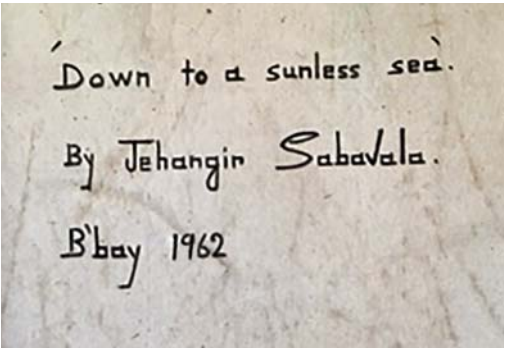 'Down to a sunless sea'.
By Jehangir Sabavala.
B'bay 1962